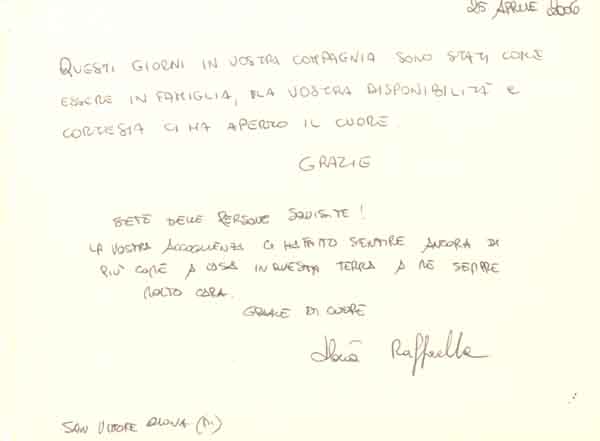 25 APRILE 2006
QUESTI GIORNI IN VOSTRA COMPAGNIA SONO STATI COME
ESSERE IN FAMIGLIA, LA VOSTRA DISPONIBILITÀ E
CORTESIA CI HA APERTO IL CUORE.
GRAZIE
SIETE DELLE PERSONE SQUISITE!
LA VOSTRA ACCOGLIENZA CI HA FATTO SENTIRE ANCORA DI
PIÙ COME A CASA IN QUESTA TERRA A ME SEMPRE
MOLTO CARA.
GRAZIE DI CUORE
Raffaella
SAN VITTORE OLONA (MI)